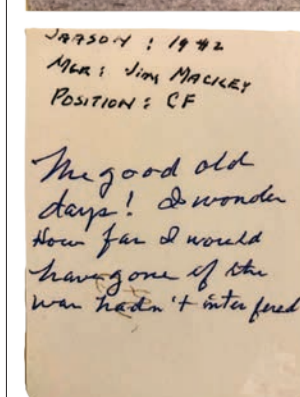 SEASON : 1942
MGR : Jim MACKEY
POSITION : CF
The good old
days! I wonder
How far I would
have gone if the
war hadn't interfered